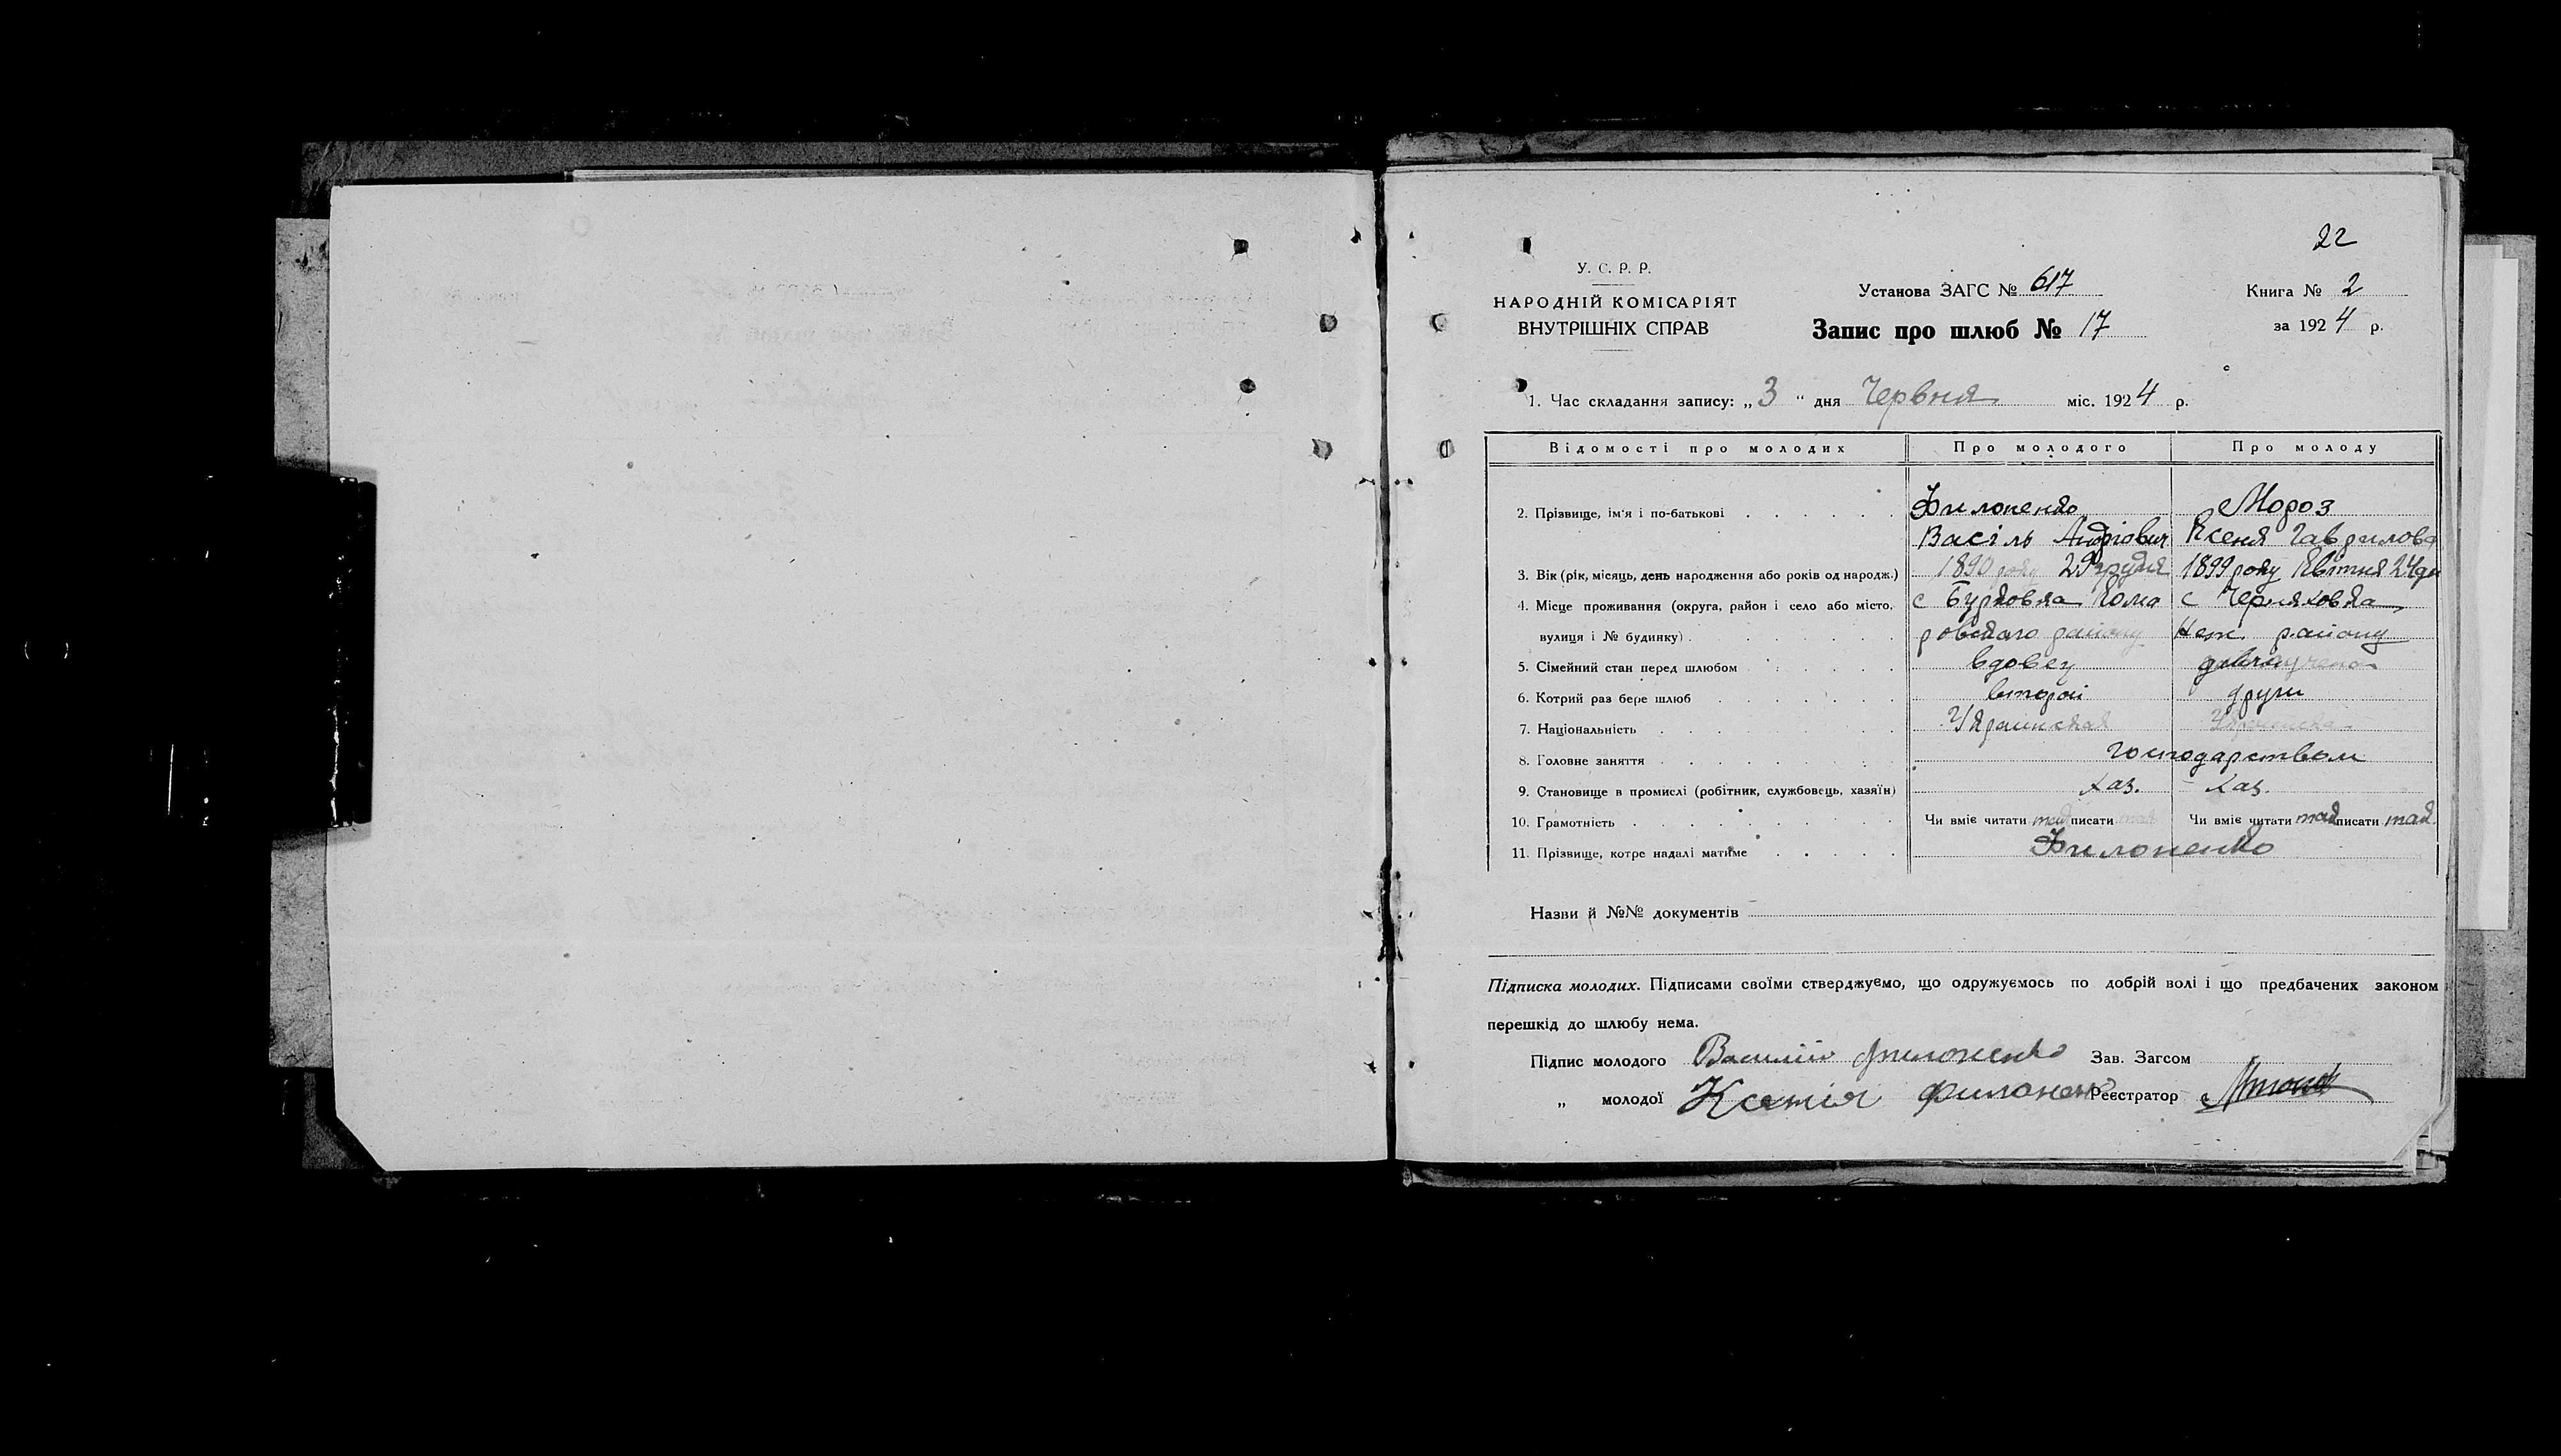 22
У. С. Р. Р.
НАРОДНІЙ КОМІСАРІЯТ
ВНУТРІШНІХ СПРАВ
Установа ЗАГС № 617
Запис про шлюб № 17
Книга № 2
за 1924 р.
1. Час складання запису: „ 3 “ дня Червня міс. 1924 р.
Відомості про молодих Про молодого Про молоду
2. Прізвище, ім'я і по-батькові Филоненко Мороз
Васіль Андріович Ксеня Гаврилова
3. Вік (рік, місяць, день народження або років од народж.) 1890 року 29 грудня 1899 року Квітня 24 дн
4. Місце проживання (округа, район і село або місто, с Бурковка Кома с Черняховка
вулиця і № будинку) ровскаго району Неж. району
5. Сімейний стан перед шлюбом вдовец
6. Котрий раз бере шлюб второй други
7. Національність Украинская Украинска
8. Головне заняття господарством
9. Становище в промислі (робітник, службовець, хазяїн) хаз. хаз.
10. Грамотність Чи вміє читати так писати так Чи вміє читати так писати так
11. Прізвище, котре надалі матиме Филоненко
Назви й №№ документів
Підписка молодих. Підписами своїми стверджуємо, що одружуємось по добрій волі і що предбачених законом
перешкід до шлюбу нема.
Підпис молодого Василий Филоненко Зав. Загсом
„ молодої Ксенія Филонен Реєстратор